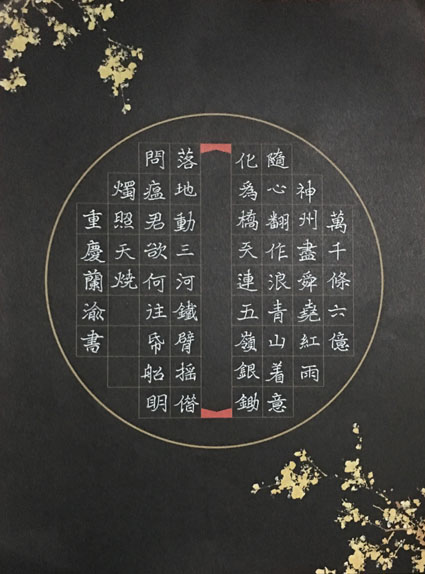 萬千條六億
神州盡舜堯紅雨
隨心翻作浪青山着意
化爲橋天連五嶺銀鋤
落地動三河鐵臂搖借
問瘟君欲何往帋船明
燭照天燒
重慶蘭渝書